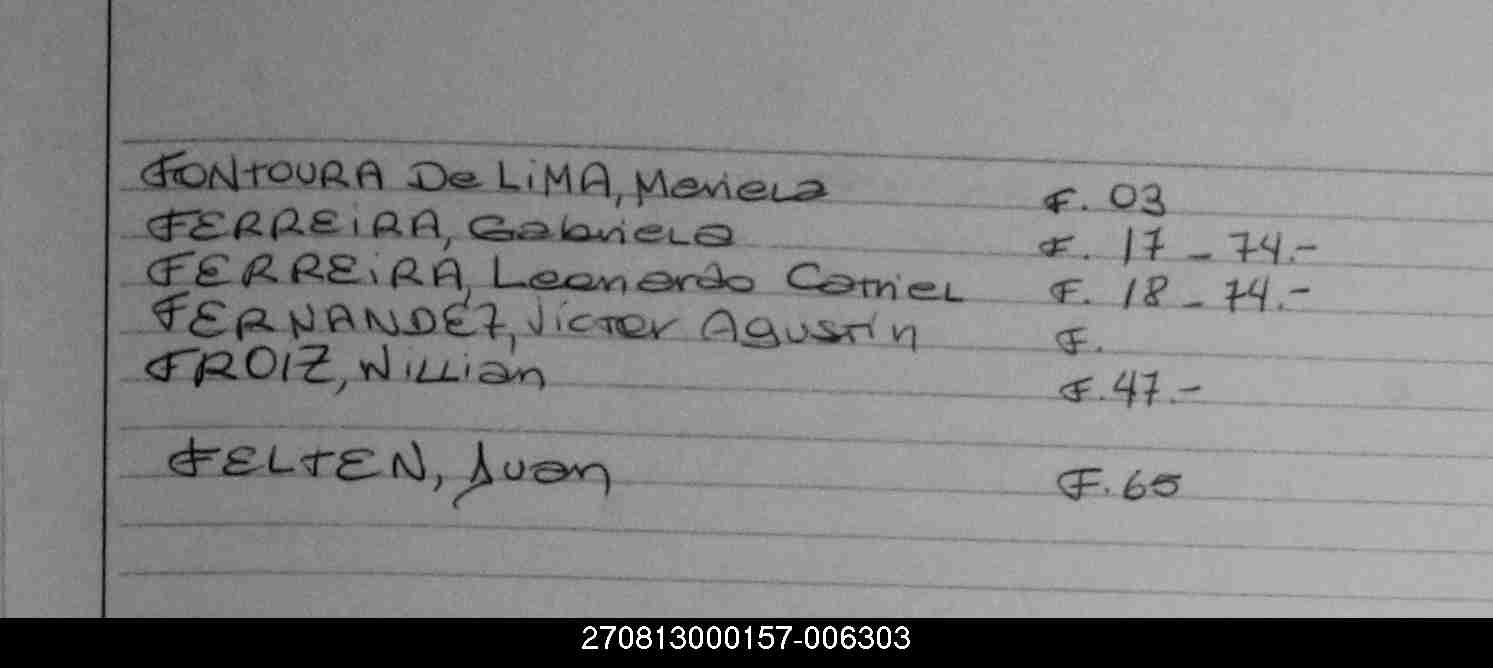 FONTOURA De LiMA, Mariela F. 03
FERREiRA, Gabriela F. 17 - 74.-
FERREiRA, Leonardo Catriel F. 18 - 74.-
FERNANDEZ, Victor Agustín F.
FROIZ, Willian F. 47.-
FELTEN, Juan F. 65
270813000157-006303